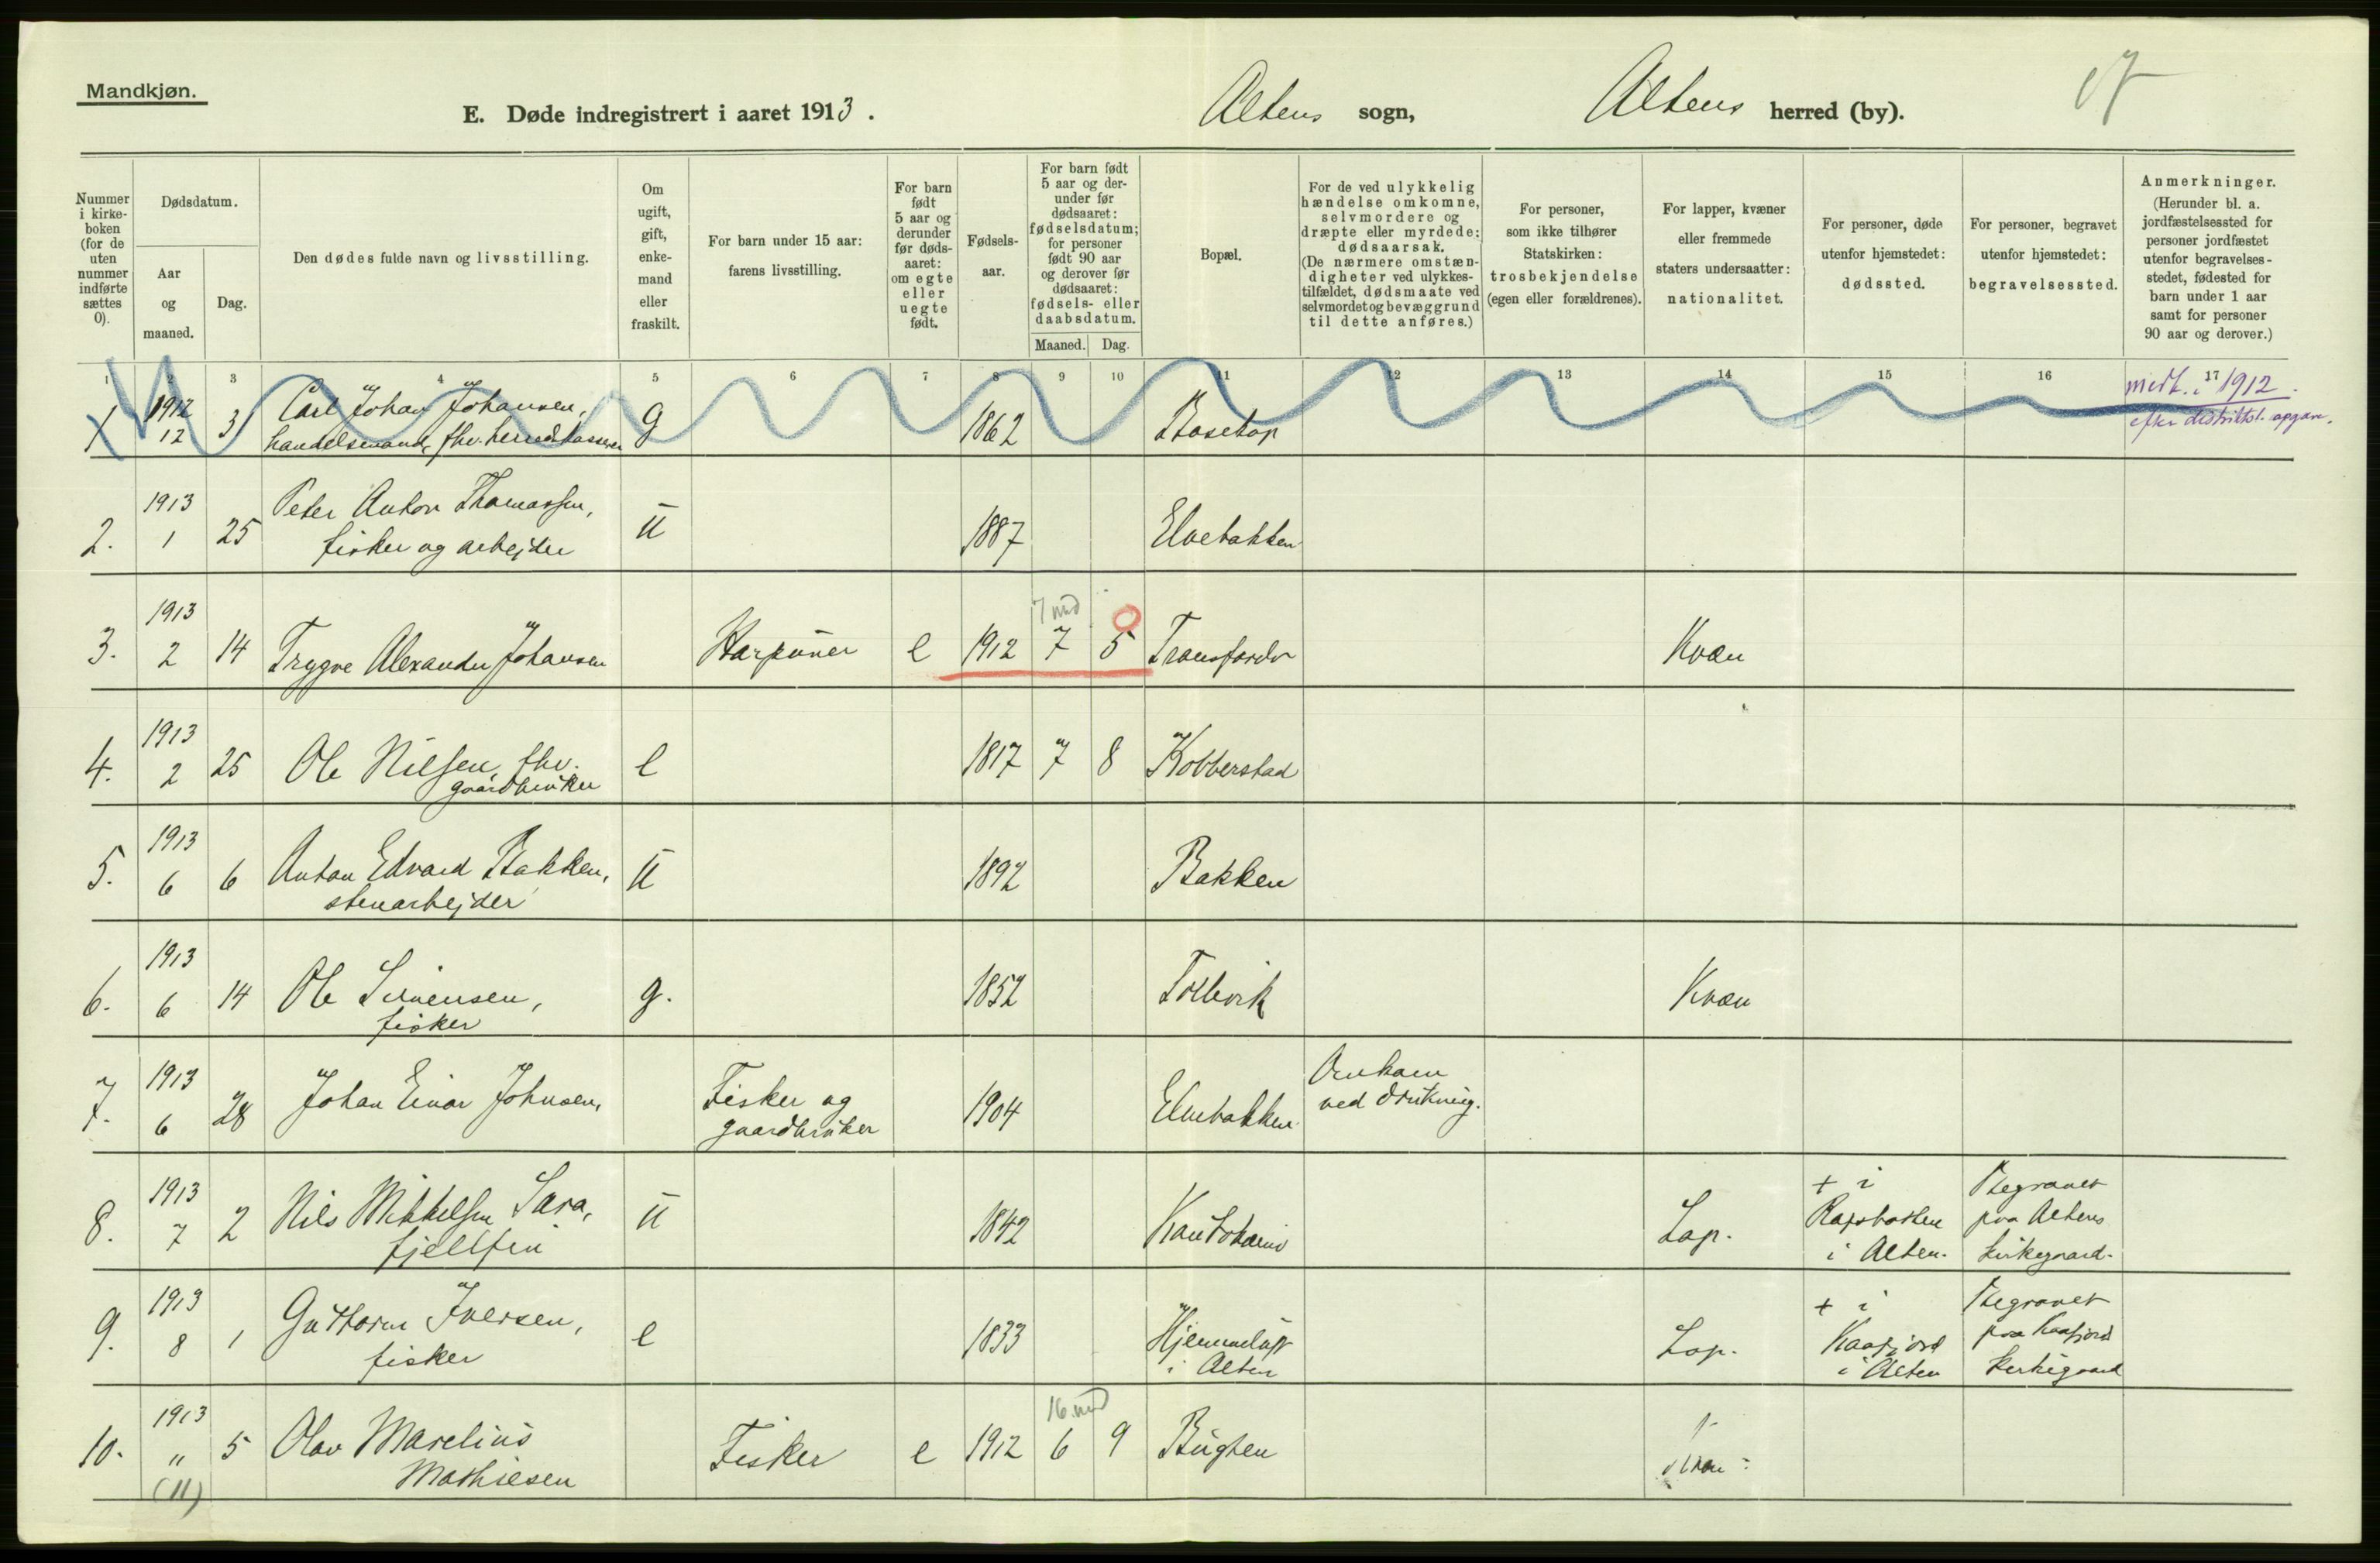 Mandkjøn.
E. Døde indregistrert i aaret 1913. Altens sogn, Altens herred (by). 17
Nummer i kirkeboken (for de uten nummer indførte sættes 0).
Dødsdatum.
Aar og maaned.
Dag.
Den dødes fulde navn og livsstilling.
Om ugift, gift, enkemand eller fraskilt.
For barn under 15 aar: farens livsstilling.
For barn født 5 aar og derunder før dødsaaret: om egte eller uegte født.
Fødselsaar.
For barn født 5 aar og derunder før dødsaaret: fødselsdatum; for personer født 90 aar og derover før dødsaaret: fødsels- eller daabsdatum.
Maaned. Dag.
Bopæl.
For de ved ulykkelig hændelse omkomne, selvmordere og dræpte eller myrdede: dødsaarsak. (De nærmere omstændigheter ved ulykkestilfældet, dødsmaate ved selvmordet og bevæggrund til dette anføres.)
For personer, som ikke tilhører Statskirken: trosbekjendelse (egen eller forældrenes).
For lapper, kvæner eller fremmede staters undersaatter: nationalitet.
For personer, døde utenfor hjemstedet: dødssted.
For personer, begravet utenfor hjemstedet: begravelsessted.
Anmerkninger. (Herunder bl. a. jordfæstelsessted for personer jordfæstet utenfor begravelsesstedet, fødested for barn under 1 aar samt for personer 90 aar og derover.)
1 2 3 4 5 6 7 8 9 10 11 12 13 14 15 16 17
1 1912 12 31 Carl Johan Johansen, g 1862 Bosekop medt. i 1912.
handelsmand, fhv. herredskasserer efter distriktsl. opgave.
2. 1913 1 25 Peter Anton Thomassen, u 1887 Elvebakken
fisker og arbejder
3. 1913 2 14 Trygve Alexander Johansen Harpuner e 1912 7 md 7 5 0 Transfarelv Kvæn
4. 1913 2 25 Ole Nilsen, fhv. e 1817 7 8 Kobberstad
gaardbruker
5. 1913 6 6 Anton Edvard Bakken, u 1892 Bakken
stenarbejder
6. 1913 6 14 Ole Simensen, g. 1852 Tollevik Kvæn
fisker
7. 1913 6 28 Johan Einar Johnsen, Fisker og 1904 Elvebakken Omkom
gaardbruker ved drukning.
8. 1913 7 2 Nils Mikkelsen Sara, u 1842 Kautokeino Lap. + i Begravet
fjellfin Rafsbotten paa Altens
i Alten. kirkegaard.
9. 1913 8 1 Guttorm Iversen, e 1833 Hjemmeluft Lap. + i Begravet
fisker i Alten Kaafjord paa Kaafjord
i Alten kirkegaard
10. 1913 " 5 Olav Marelius Fisker e 1912 16 md 6 9 Bugten
(11) Mathiesen